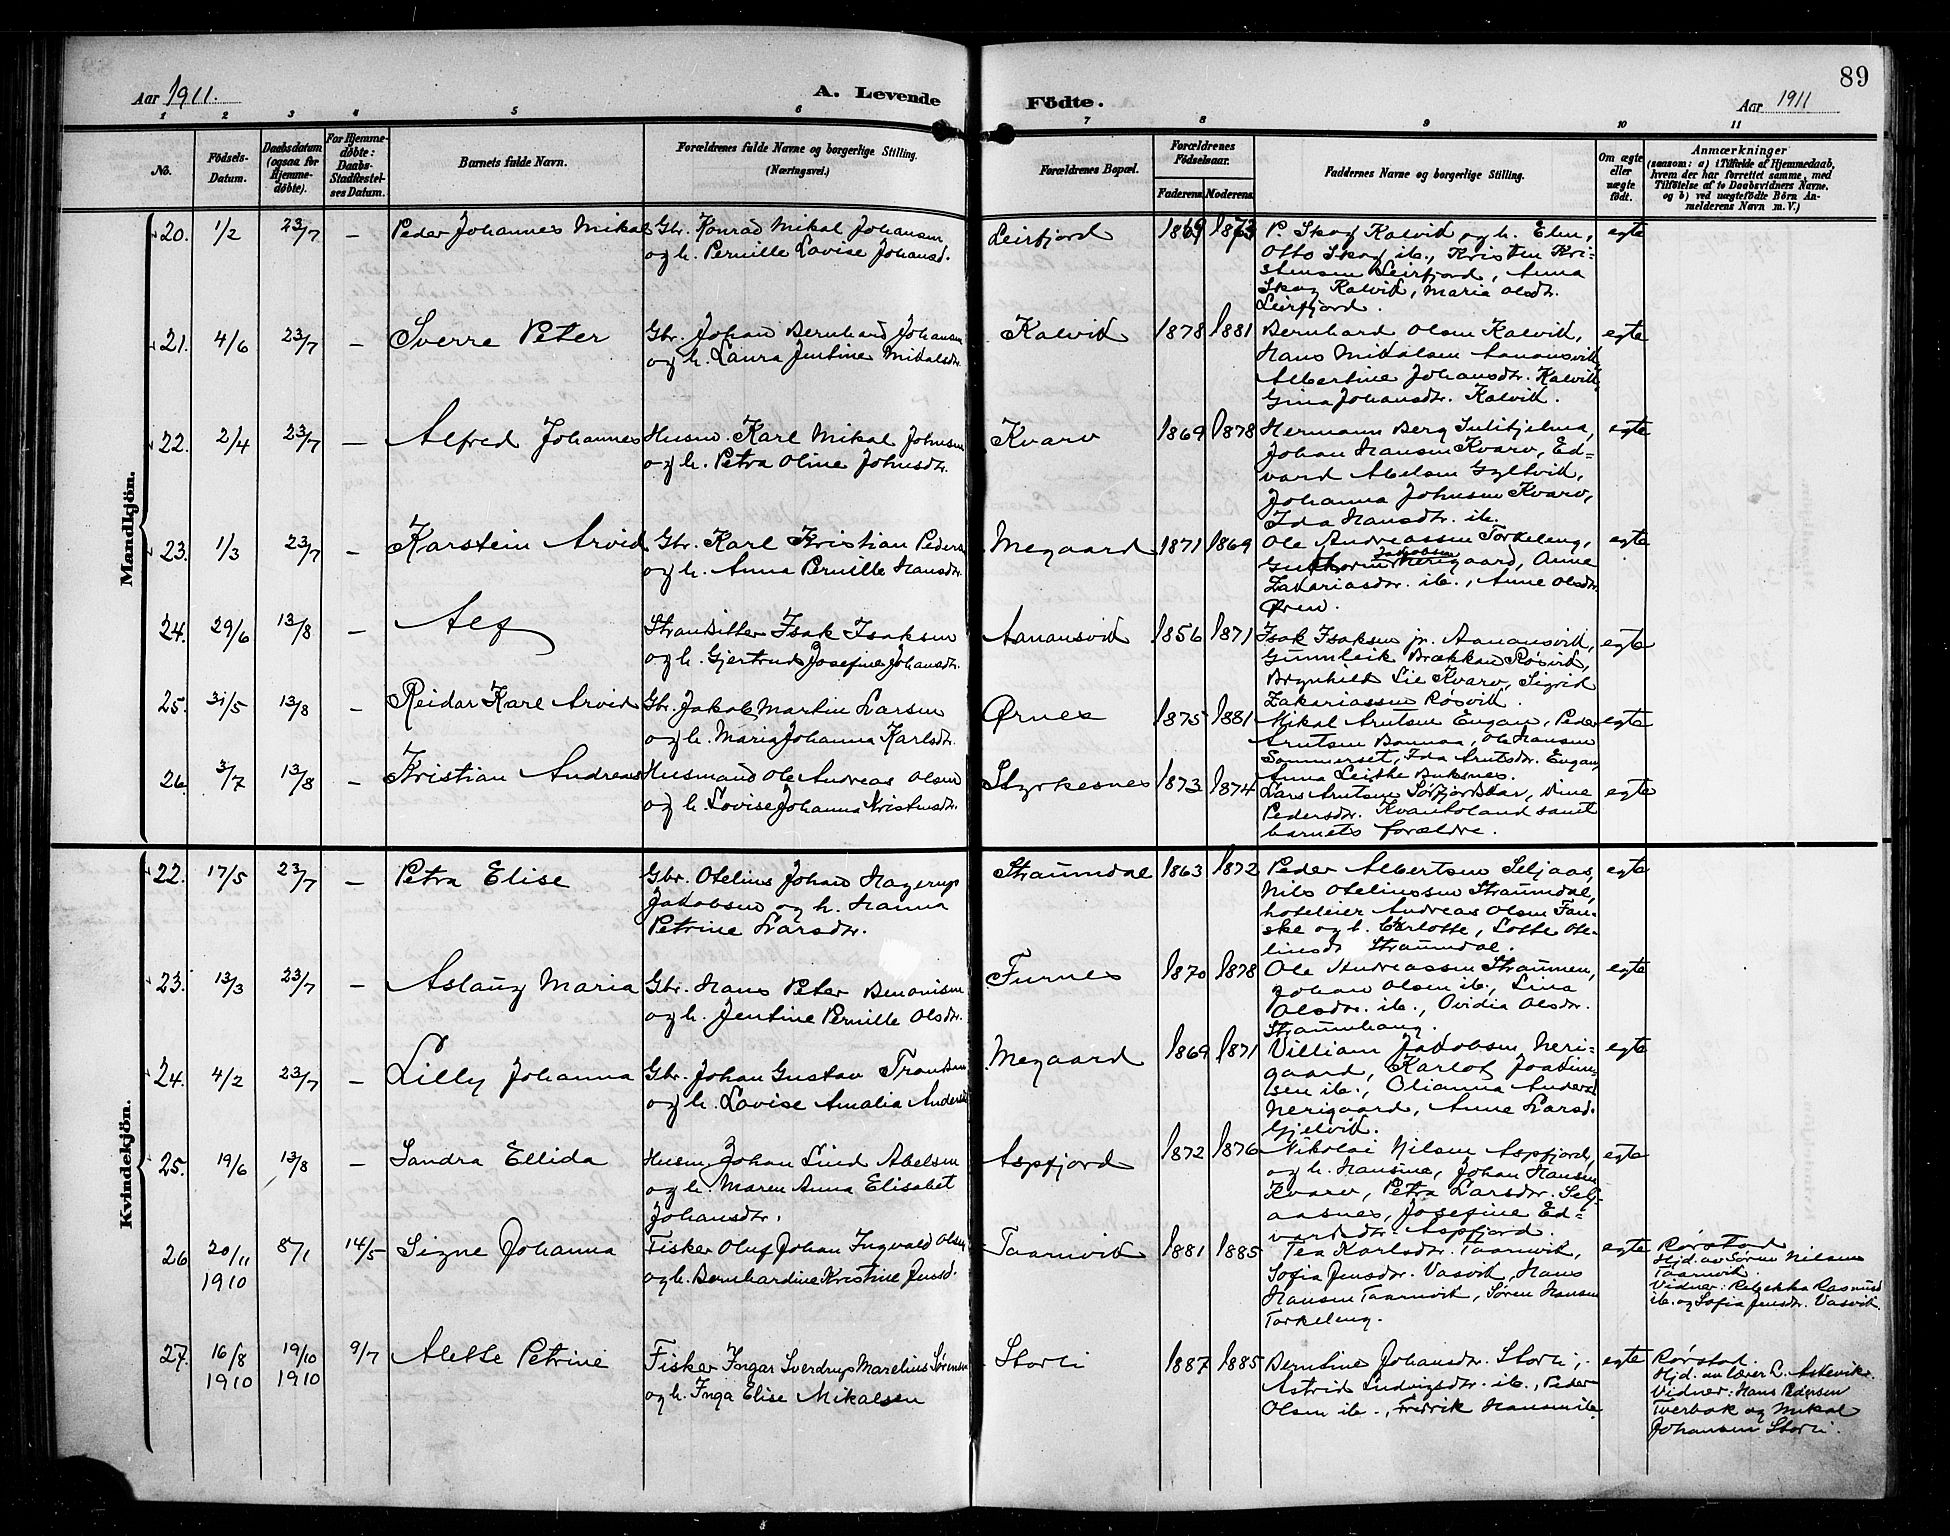 89
Aar 1911.
A. Levende Födte.
Aar 1911
1 2 3 4 5 6 7 8 9 10 11
No.
Födsels-Datum.
Daabsdatum (ogsaa for Hjemme-døbte).
For Hjemme-døbte: Daabs-Stadfæstel-ses Datum.
Barnets fulde Navn.
Forældrenes fulde Navne og borgerlige Stilling. (Næringsvei.)
Forældrenes Bopæl.
Forældrenes Födselsaar.
Faderens. Moderens.
Faddernes Navne og borgerlige Stilling.
Om ægte eller uægte födt.
Anmærkninger
(saasom: a) i Tilfælde af Hjemmedaab, hvem der har forrettet samme, med Tilföielse af to Daabsvidners Navne, og b) ved uægtefödte Börn An-melderens Navn m. V.)
Mandkjön.
20. 1/2 23/7 — Peder Johannes Mikal
Gbr. Konrad Mikal Johansen
og h. Pernille Lovise Johansd.
Leirfjord 1869 1873
P. Skog Kalvik og h. Elen,
Otto Skog ib., Kristen Kri-
stensen Leirfjord, Anna
Skog Kalvik, Maria Olsdr.
Leirfjord.
egte
21. 4/6 23/7 Sverre Peter
Gbr. Johan Bernhard Johansen
og h. Laura Jentine Mikalsdr.
Kalvik 1878 1881
Bernhard Olsen Kalvik,
Hans Mikalsen Aanansvik,
Albertine Johansdtr. Kalvik,
Gina Johansdtr. Kalvik.
egte
22. 2/4 23/7 — Alfred Johannes
Husm. Karl Mikal Johnsen
og h. Petra Oline Johnsdtr.
Kvarv 1869 1878
Hermann Berg Sulitjelma,
Johan Hansen Kvarv, Ed-
vard Abelsen Gyltvik,
Johanna Johnsen Kvarv,
Ida Hansdtr. ib.
egte
23. 1/3 23/7 — Karstein Arvid
Gbr. Karl Kristian Peders
og h. Anna Pernille Hansdtr.
Megaard 1871 1869
Ole Andreassen Torkeleng,
Guthorm Jakobsen Nerigaard, Anne
Zakariasdtr. ib., Anne Olsdtr
Øren.
egte
24. 29/6 13/8 — Alf
Strandsitter Isak Isaksen
og h. Gjertrud Josefine Johansdtr.
Aanansvik 1856 1871
Isak Isaksen jr. Aanansvik,
Gunnleik Brækkan Røsvik,
Brynhild Lie Kvarv, Sigrid
Zakariassen Røsvik.
egte
25. 31/5 13/8 — Reidar Karl Arvid
Gbr. Jakob Martin Larsen
og h. Maria Johanna Karlsdtr.
Ørnes 1875 1881
Mikal Arntsen Engan, Peder
Arntsen Bonnaa, Ole Hansen
Sommerset, Ida Arntsdr. Engan,
Anna Leithe Buksnes.
egte
26 3/7 13/8 — Kristian Andreas
Husmand Ole Andreas Olsen
og h. Lovise Johanna Kristensdtr.
Styrkesnes 1873 1874
Lars Arntsen Sørfjordstav, Dine
Pedersdtr. Kvantoland samt
barnets forældre.
egte
Kvindekjön.
22. 17/5 23/7 — Petra Elise
Gbr. Otelius Johan Hagerup
Jakobsen og h. Hanna
Petrine Larsdtr.
Straumdal 1863 1872
Peder Albertsen Seljaas,
Nils Oteliussen Straumdal,
hoteleier Andreas Olsen Fau-
ske og h. Charlotte, Lotte Ote-
liusdt Straumdal.
egte
23. 13/3 23/7 — Aslaug Maria
Gbr. Hans Peter Benonisen
og h. Jentine Pernille Olsdtr.
Furnes 1870 1878
Ole Andreassen Straumen,
Johan Olsen ib., Lina
Olsdtr. ib., Ovidia Olsdr.
Straumhaug.
egte
24. 4/2 23/7 — Lilly Johanna
Gbr. Johan Gustav Frantsen
og h. Lovise Amalia Andersd
Megaard 1869 1871
Villiam Jakobsen Neri-
gaard, Karlot Joakim-
sen ib., Olianna Andersd
Nerigaard, Anne Larsd.
Gjelvik.
egte
25. 19/6 13/8 — Sandra Ellida
Husm. Johan Lind Abelsen
og h. Maren Anna Elisabet
Johansdtr.
Aspfjord 1872 1876
Nikolai Nilsen Aspfjord,
og h. Hansine, Johan Hansen
Kvarv, Petra Larsdtr. Selj-
aasnes, Josefine Ed-
vardsdtr. Aspfjord.
egte
26 20/11 1910 8/1 14/5 Signe Johanna
Fisker Oluf Johan Ingvald Olsen
og h. Bernhardine Kristine Jensd.
Taarnvik 1881 1885
Tea Karlsdtr. Taarnvik,
Sofia Jensdtr. Vasvik, Hans
Hansen Taarnvik, Søren Hansen
Torkeleng.
egte
Rørstad
Hjd. av Søren Nilsen
Taarnvik
Vidner: Rebekka Rasmusd
ib. og Sofia Jensdtr. Vasvik.
27. 16/8 1910 19/10 1910 9/7 Alette Petrine
Fisker Ingar Sverdrup Marelius Sørensen
og h. Inga Elise Mikalsen
Storli 1887 1885
Berntine Johansdtr. Storli,
Astrid Ludvigsdtr. ib., Peder
Olsen ib., Fredrik Hansen ib.
egte
Rørstad.
Hjd. av lærer L. Askevik.
Vidner: Hans Pedersen
Tverbak og Mikal
Johansen Storli.